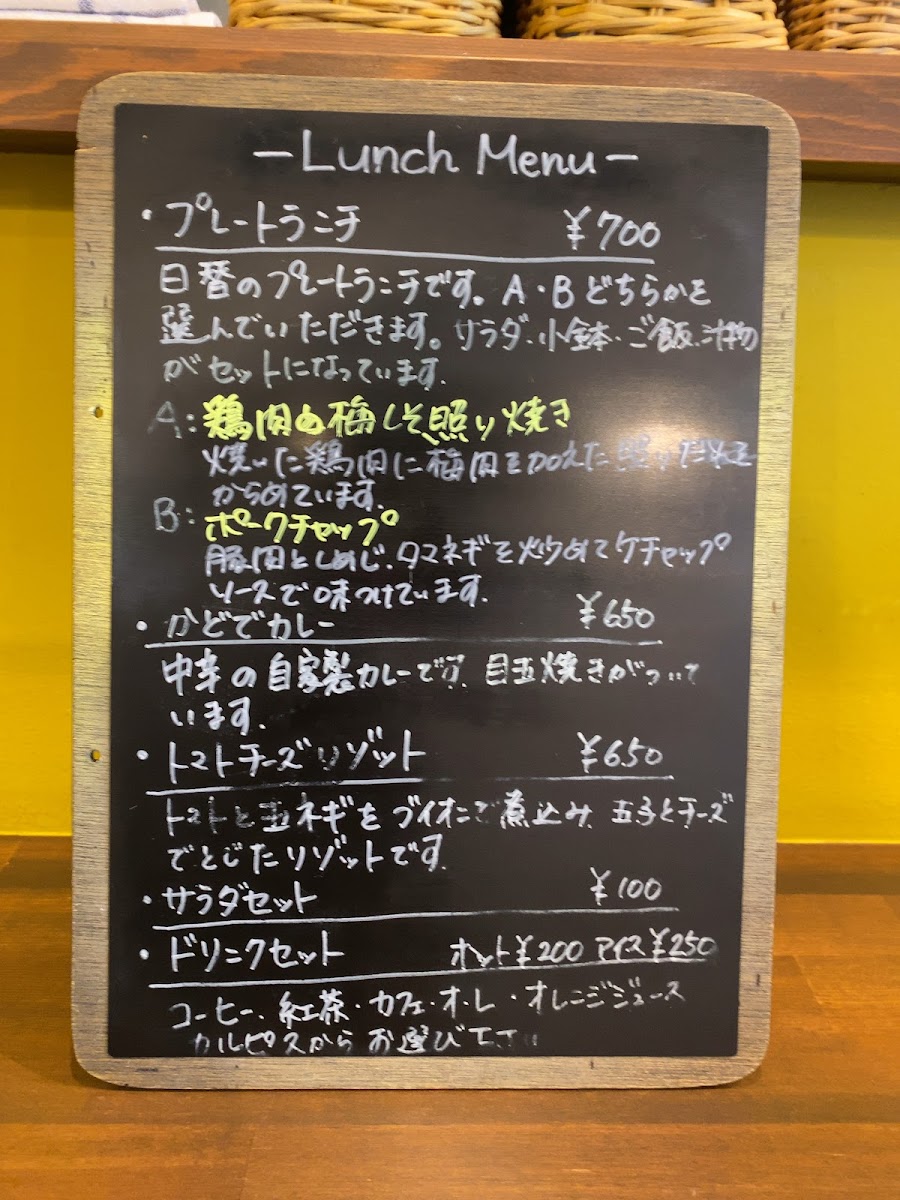 -Lunch Menu-
・プレートランチ ¥700
日替のプレートランチです。A・Bどちらかを
選んでいただきます。サラダ・小鉢・ご飯・汁物
がセットになっています。
A: 鶏肉の梅しそ照り焼き
焼いた鶏肉に梅肉を加えた照りだれを
からめています。
B: ポークチャップ
豚肉としめじ、タマネギを炒めてケチャップ
ソースで味つけています。
・かどでカレー ¥650
中辛の自家製カレーです。目玉焼きがついて
います。
・トマトチーズリゾット ¥650
トマトと玉ネギをブイオンで煮込み、玉子とチーズ
でとじたリゾットです。
・サラダセット ¥100
・ドリンクセット ホット¥200 アイス¥250
コーヒー・紅茶・カフェ・オ・レ・オレンジジュース
カルピスからお選び下さい